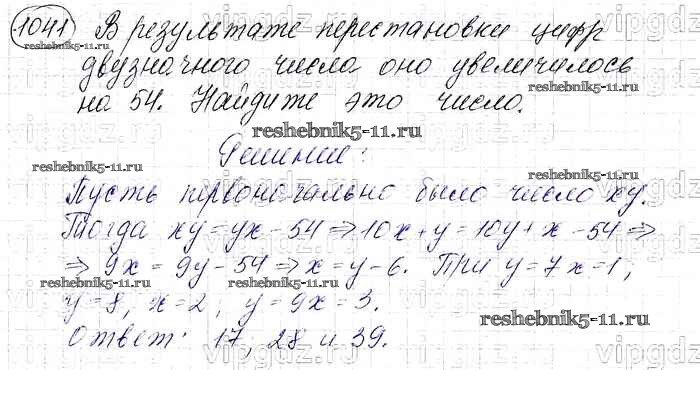 1041 В результате перестановки цифр
двузначного числа оно увеличилось
на 54. Найдите это число.
reshebnik5-11.ru
reshebnik5-11.ru
reshebnik5-11.ru
Решение:
reshebnik5-11.ru
reshebnik5-11.ru
Пусть первоначально было число xy.
Тогда xy = yx - 54 ⇒ 10x + y = 10y + x - 54 ⇒
⇒ 9x = 9y - 54 ⇒ x = y - 6. При y = 7 x = 1,
y = 8, x = 2, y = 9 x = 3.
reshebnik5-11.ru
Ответ: 17, 28 и 39.